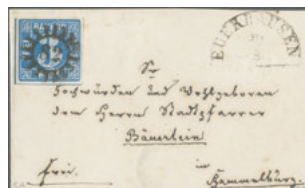 BAYERN
EUERHAUSEN
Sr
Hochwürden und Wohlgeboren
dem Herrn Stadtpfarrer
Bäuerlein
in
frei.
Hammelburg.